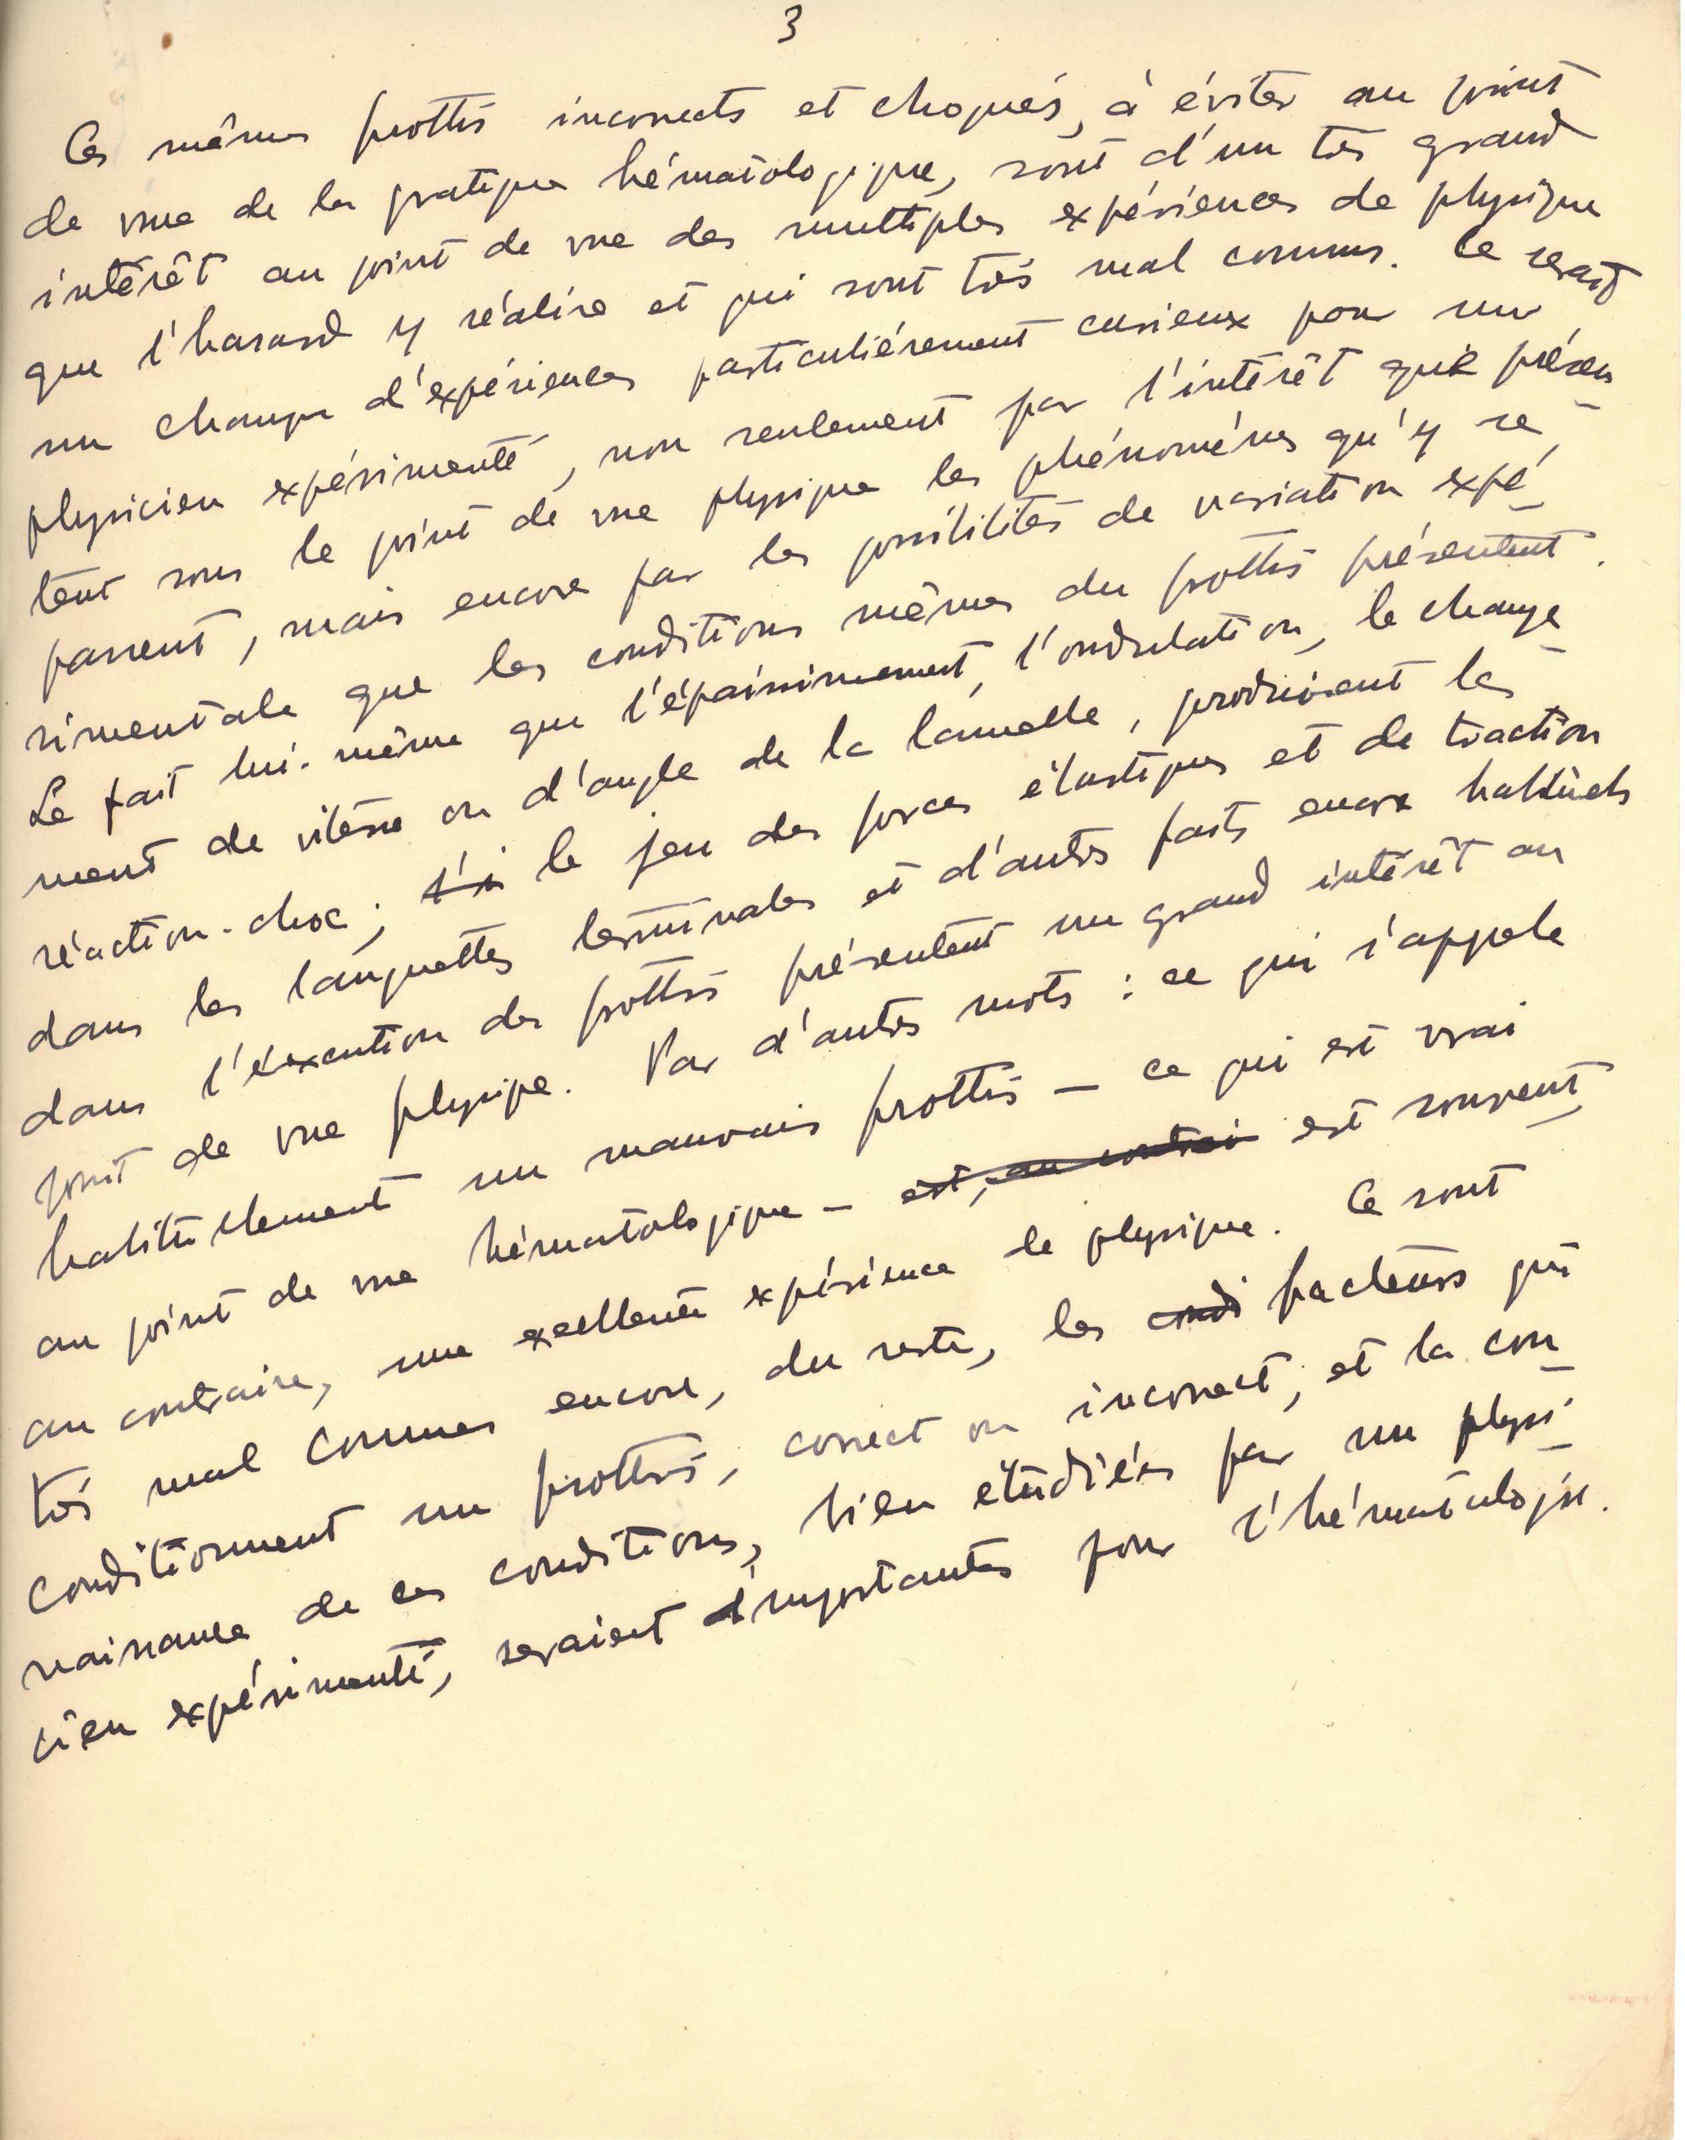 3
Ces mêmes frottis incorrects et choqués, à éviter au point
de vue de la pratique hématologique, sont d'un très grand
intérêt au point de vue des multiples expériences de physique
que l'hasard y réalise et qui sont très mal connus. Ce serait
un champs d'expériences particuliérement curieux pour un
physicien expérimenté, non seulement par l'intérêt que présen-
tent sous le point de vue physique les phénoménes qu'y se
passent, mais encore par les possibilités de variation expé-
rimentale que les conditions mêmes du frottis présentent.
Le fait lui-même que l'épaississement, l'ondulation, le change-
ment de vitesse ou d'angle de la lamelle, produisent les
réaction-choc; le jeu des forces élastiques et de traction
dans les languettes terminales et d'autres faits encore habituels
dans l'éxecution des frottis présentent un grand intérêt au
point de vue physique. Par d'autres mots : ce qui s'appele
habituellement un mauvais frottis – ce qui est vrai
au point de vue hématologique – est, au contrai est souvent,
au contraire, une excellente expérience de physique. Ce sont
très mal connues encore, du reste, les condi facteurs qui
conditionnent un frottis, correct ou incorrect; et la con-
naissance de ces conditions, bien étudiées par un physi-
cien expérimenté, seraient importantes pour l'hématologie.